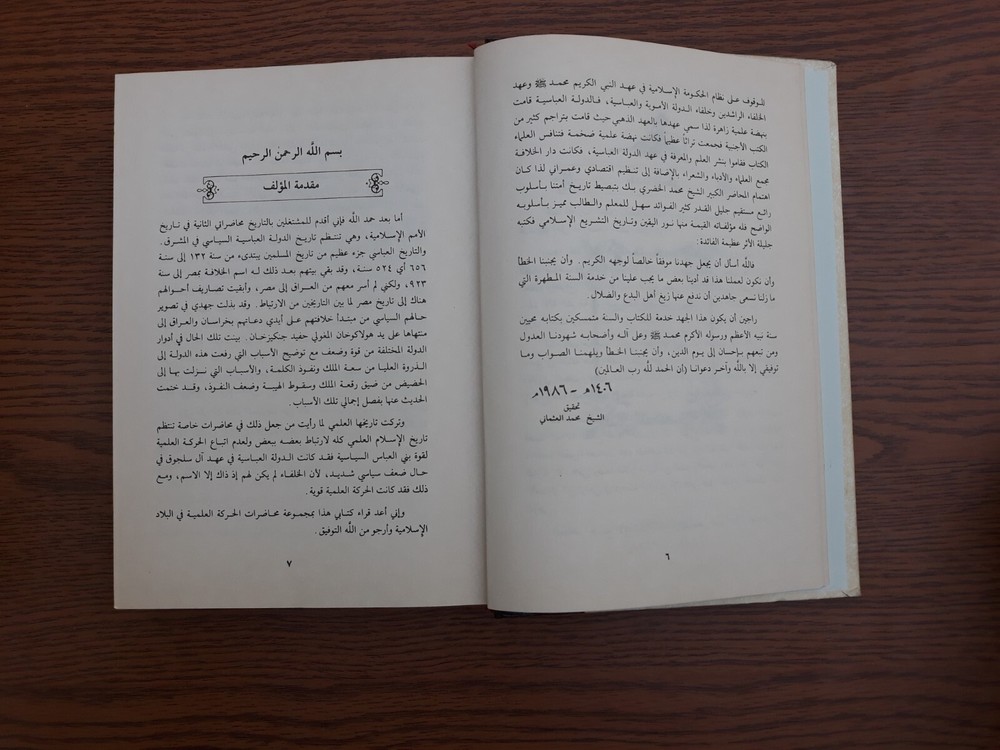 للوقوف على نظام الحكومة الإسلامية في عهد النبي الكريم محمد ﷺ وعهد
الخلفاء الراشدين وخلفاء الدولة الأموية والعباسية، فالدولة العباسية قامت
بنهضة علمية زاهرة لذا سمي عهدها بالعهد الذهبي حيث قامت بتراجم كثير من
الكتب الأجنبية فجمعت تراثاً عظيماً فكانت نهضة علمية ضخمة فتنافس العلماء
الكتاب فقاموا بنشر العلم والمعرفة في عهد الدولة العباسية، فكانت دار الخلافة
مجمع العلماء والأدباء والشعراء بالإضافة إلى تنظيم اقتصادي وعمراني لذا كان
اهتمام المحاضر الكبير الشيخ محمد الخضري بك بتبصيط تاريخ أمتنا بأسلوب
رائع مستقيم جليل القدر كثير الفوائد سهل للمعلم والطالب مميز بأسلوبه
الواضح فله مؤلفاته القيمة منها نور اليقين وتاريخ التشريع الإسلامي فكتبه
جليلة الأثر عظيمة الفائدة :
فاللَّه أسأل أن يجعل جهدنا موفقاً خالصاً لوجهه الكريم. وأن يجنبنا الخطأ
وأن نكون لعملنا هذا قد أدينا بعض ما يجب علينا من خدمة السنة المطهرة التي
ما زلنا نسعى جاهدين أن ندفع عنها زيغ أهل البدع والضلال.
راجين أن يكون هذا الجهد خدمة للكتاب والسنة متمسكين بكتابه محيين
سنة نبيه الأعظم ورسوله الأكرم محمد ﷺ وعلى آله وأصحابه شهودنا العدول
ومن تبعهم بإحسان إلى يوم الدين، وأن يجنبنا الخطأ ويلهمنا الصواب وما
توفيقي إلا باللَّه وآخر دعوانا (أن الحمد للَّه رب العالمين)
١٤٠٦هـ - ١٩٨٦م
تحقيق
الشيخ محمد العثماني
٦
بسم اللَّه الرحمن الرحيم
مقدمة المؤلف
أما بعد حمد اللَّه فإني أقدم للمشتغلين بالتاريخ محاضراتي الثانية في تاريخ
الأمم الإسلامية، وهي تنتظم تاريخ الدولة العباسية السياسي في المشرق.
والتاريخ العباسي جزء عظيم من تاريخ المسلمين يبتدىء من سنة ١٣٢ إلى سنة
٦٥٦ أي ٥٢٤ سنة، وقد بقي بيتهم بعد ذلك له اسم الخلافة بمصر إلى سنة
٩٢٣، ولكني لم أسر معهم من العراق إلى مصر، وأبقيت تصاريف أحوالهم
هناك إلى تاريخ مصر لما بين التاريخين من الارتباط. وقد بذلت جهدي في تصوير
حالهم السياسي من مبتدأ خلافتهم على أيدي دعاتهم بخراسان والعراق إلى
منتهاها على يد هولاكوخان المغولي حفيد جنكيزخان. بينت تلك الحال في أدوار
الدولة المختلفة من قوة وضعف مع توضيح الأسباب التي رفعت هذه الدولة إلى
الذروة العليا من سعة الملك ونفوذ الكلمة، والأسباب التي نزلت بها إلى
الحضيض من ضيق رقعة الملك وسقوط الهيبة وضعف النفوذ، وقد ختمت
الحديث عنها بفصل إجمالي تلك الأسباب.
وتركت تاريخها العلمي لما رأيت من جعل ذلك في محاضرات خاصة تنتظم
تاريخ الإسلام العلمي كله لارتباط بعضه ببعض ولعدم اتباع الحركة العلمية
لقوة بني العباس السياسية فقد كانت الدولة العباسية في عهد آل سلجوق في
حال ضعف سياسي شديد، لأن الخلفاء لم يكن لهم إذ ذاك إلا الاسم، ومع
ذلك فقد كانت الحركة العلمية قوية.
وإني أعد قراء كتابي هذا بمجموعة محاضرات الحركة العلمية في البلاد
الإسلامية وأرجو من اللَّه التوفيق.
٧